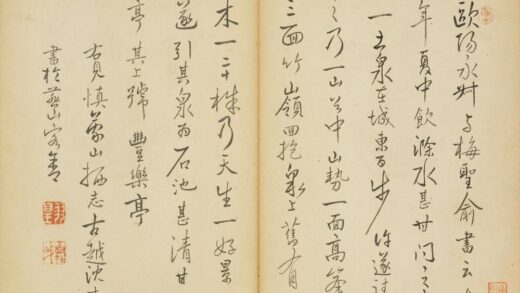 歐陽永叔與梅聖俞書云
年夏中飲滁水甚甘問之
一土泉在城東百步許遂往
之乃一山谷中山勢一面高峯
三面竹嶺回抱泉上舊有
木一二十株乃天生一好景
遂引其泉為石池甚清甘
亭其上號豐樂亭
右見慎蒙山栖志古越沈
書於山客